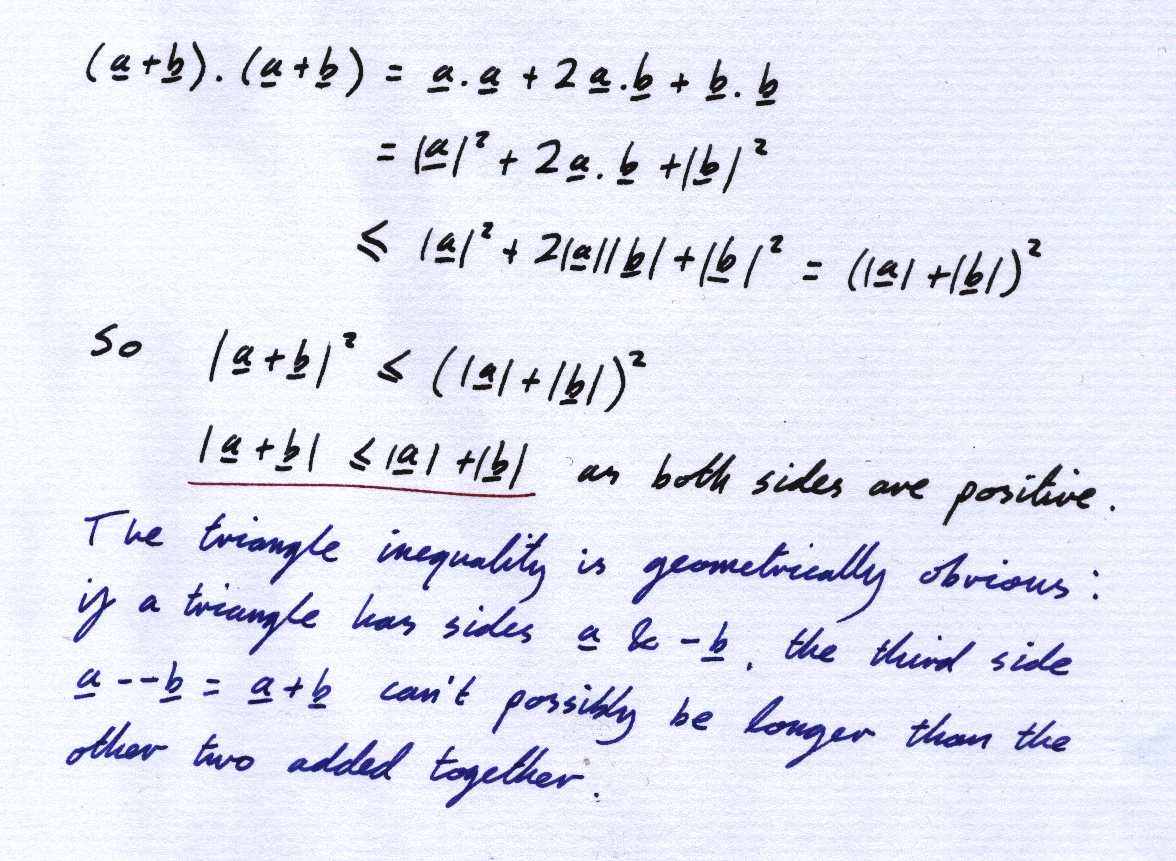 (a̲+b̲).(a̲+b̲) = a̲.a̲ + 2a̲.b̲ + b̲.b̲
= |a̲|² + 2a̲.b̲ + |b̲|²
⩽ |a̲|² + 2|a̲||b̲| + |b̲|² = (|a̲| + |b̲|)²
So |a̲+b̲|² ⩽ (|a̲| + |b̲|)²
|a̲+b̲| ⩽ |a̲| + |b̲| as both sides are positive.
The triangle inequality is geometrically obvious:
if a triangle has sides a̲ & -b̲, the third side
a̲ - -b̲ = a̲+b̲ can't possibly be longer than the
other two added together.